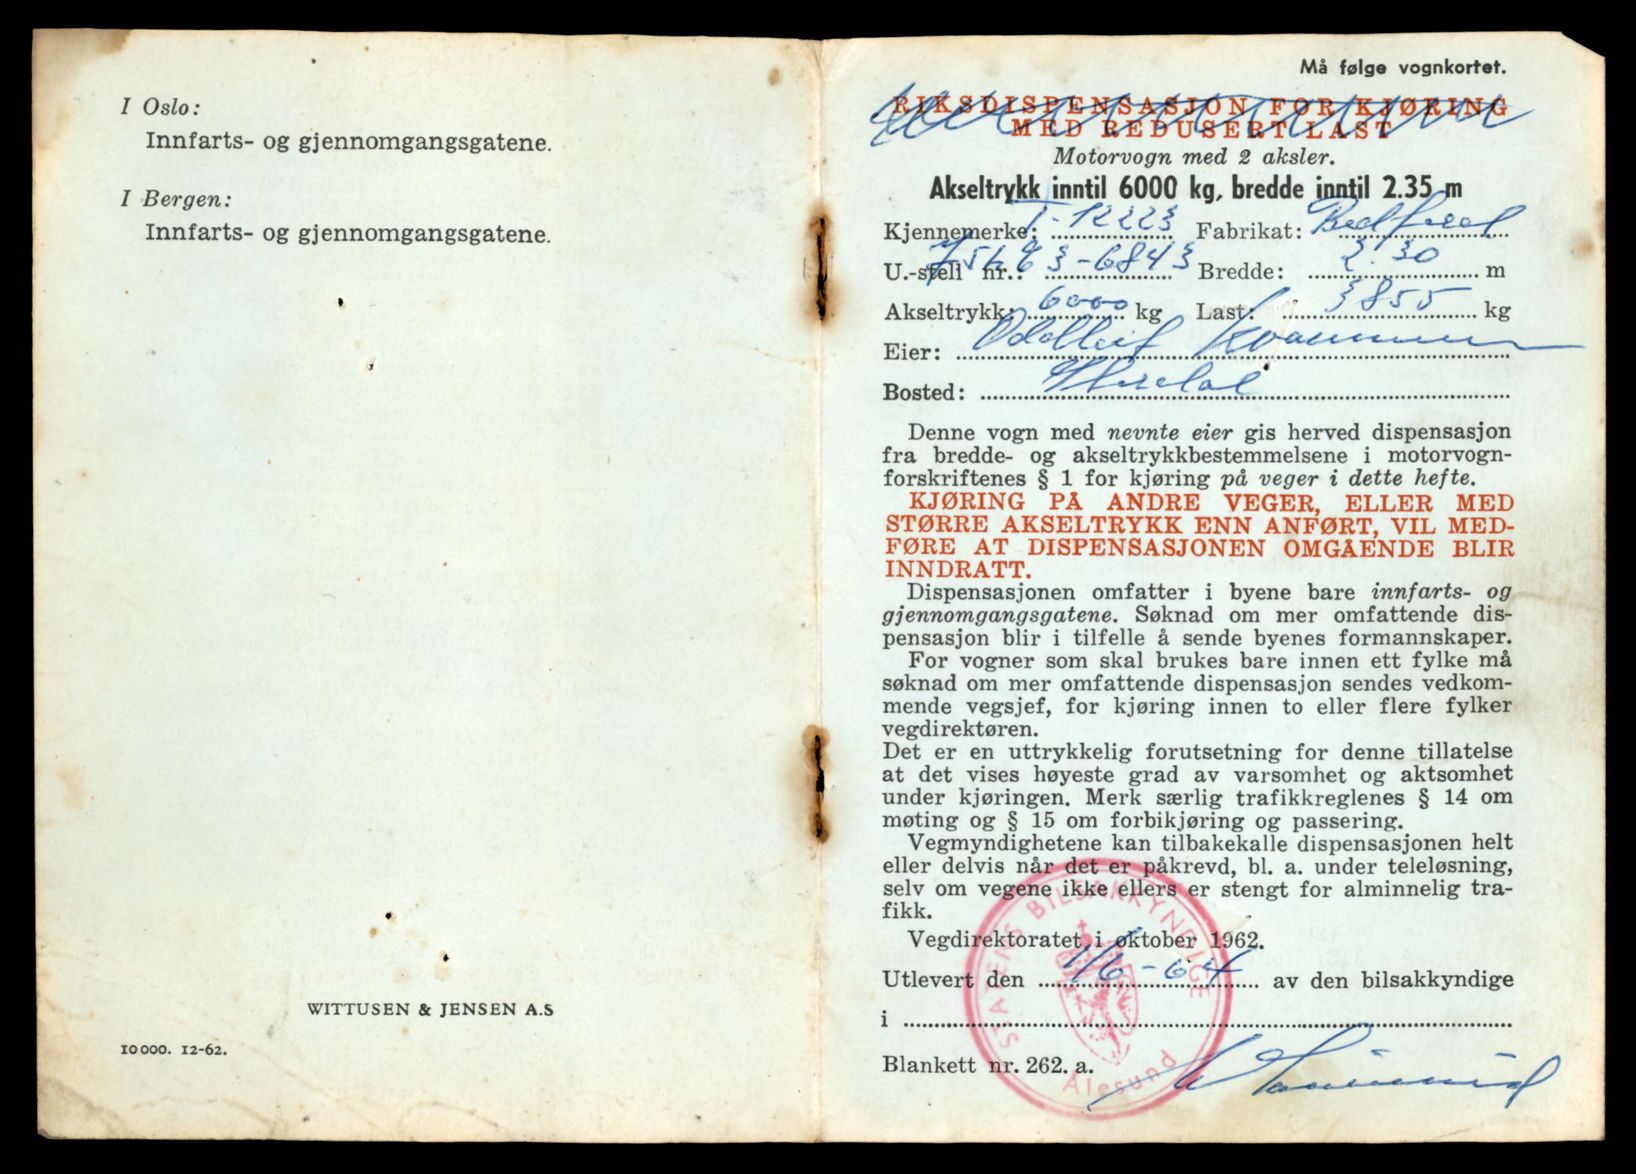 I Oslo:
Innfarts- og gjennomgangsgatene.
I Bergen:
Innfarts- og gjennomgangsgatene.
WITTUSEN & JENSEN A.S
10000. 12-62.
Må følge vognkortet.
RIKSDISPENSASJON FOR KJØRING
MED REDUSERT LAST
Motorvogn med 2 aksler.
Akseltrykk inntil 6000 kg, bredde inntil 2.35 m
Kjennemerke: T-12223 Fabrikat: Bedford
U.-stell nr.: Bredde: 2.30 m
Akseltrykk: 6000 kg Last: 3855 kg
Eier: Oddleif
Bosted:
Denne vogn med nevnte eier gis herved dispensasjon
fra bredde- og akseltrykkbestemmelsene i motorvogn-
forskriftenes § 1 for kjøring på veger i dette hefte.
KJØRING PÅ ANDRE VEGER, ELLER MED
STØRRE AKSELTRYKK ENN ANFØRT, VIL MED-
FØRE AT DISPENSASJONEN OMGÅENDE BLIR
INNDRATT.
Dispensasjonen omfatter i byene bare innfarts- og
gjennomgangsgatene. Søknad om mer omfattende dis-
pensasjon blir i tilfelle å sende byenes formannskaper.
For vogner som skal brukes bare innen ett fylke må
søknad om mer omfattende dispensasjon sendes vedkom-
mende vegsjef, for kjøring innen to eller flere fylker
vegdirektøren.
Det er en uttrykkelig forutsetning for denne tillatelse
at det vises høyeste grad av varsomhet og aktsomhet
under kjøringen. Merk særlig trafikkreglenes § 14 om
møting og § 15 om forbikjøring og passering.
Vegmyndighetene kan tilbakekalle dispensasjonen helt
eller delvis når det er påkrevd, bl. a. under teleløsning,
selv om vegene ikke ellers er stengt for alminnelig tra-
fikk.
Vegdirektoratet i oktober 1962.
Utlevert den 1/6-64 av den bilsakkyndige
i
Blankett nr. 262. a.
STATENS BILSAKKYNDIGE
Ålesund